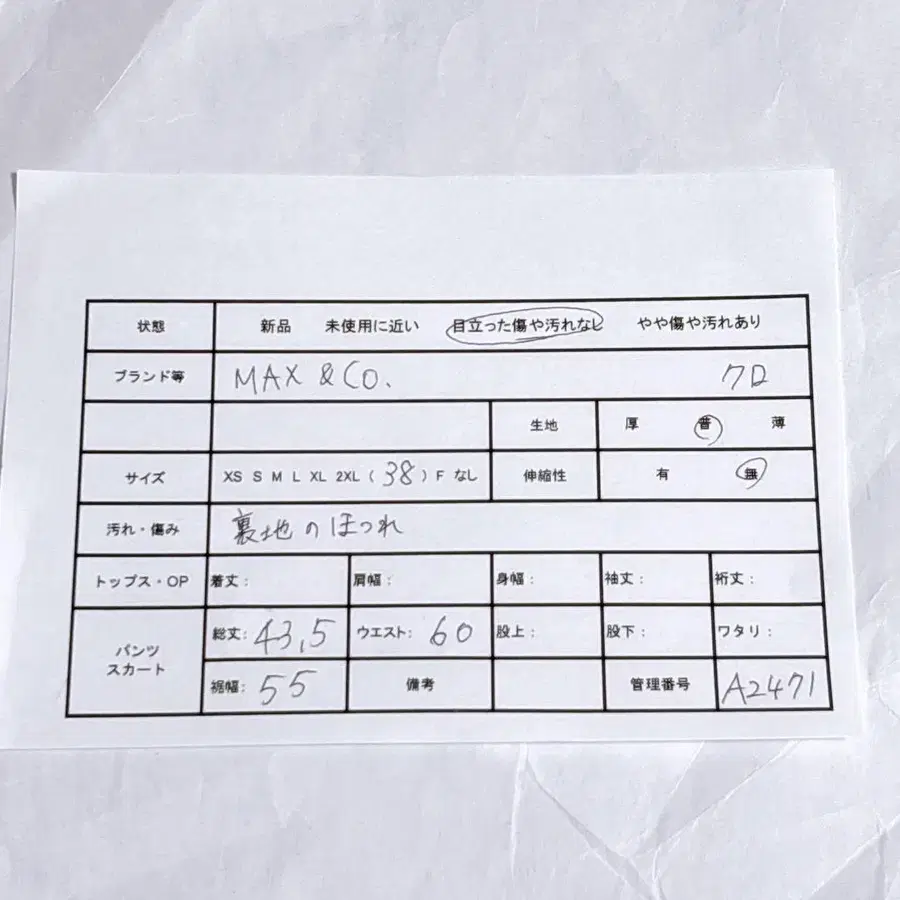 状態 新品 未使用に近い 目立った傷や汚れなし やや傷や汚れあり
ブランド等 MAX & CO. クロ
生地 厚 普 薄
サイズ XS S M L XL 2XL ( 38 ) F なし 伸縮性 有 無
汚れ・傷み 裏地のほつれ
トップス・OP 着丈: 肩幅: 身幅: 袖丈: 裄丈:
パンツ
スカート
総丈: 43,5 ウエスト: 60 股上: 股下: ワタリ:
裾幅: 55 備考 管理番号 A2471